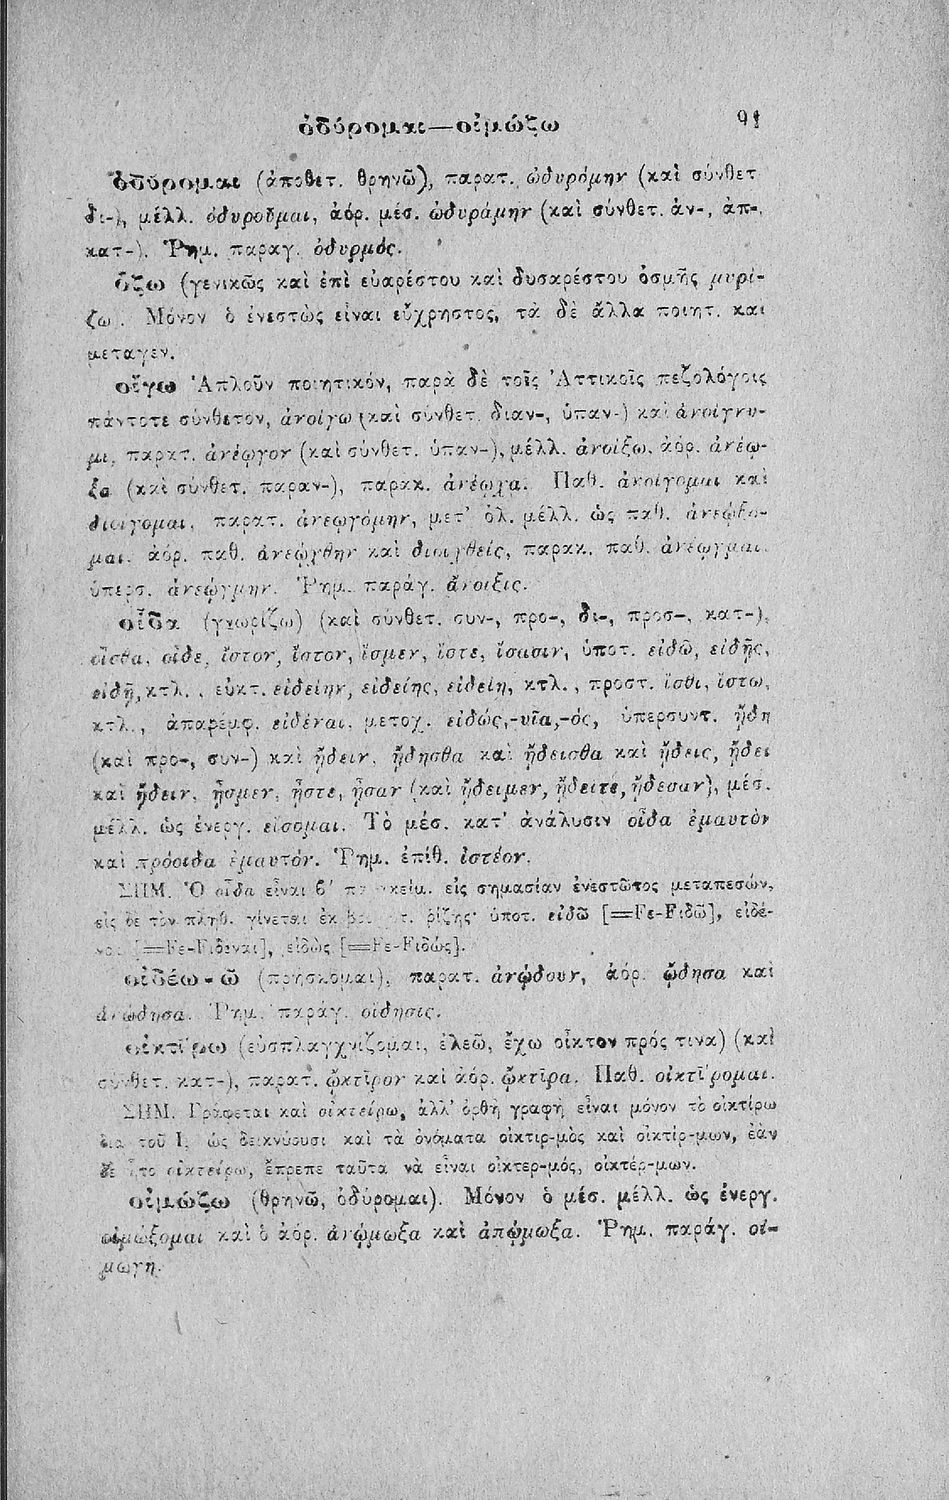 ὀδύρομαι—οἰμώζω 91
ὀδύρομαι (ἀποθετ. θρηνῶ), παρατ. ὠδυρόμην (καὶ σύνθετ
δι-), μέλλ. ὀδυροῦμαι, ἀόρ. μέσ. ὠδυράμην (καὶ σύνθετ. ἀν-, ἀπ-,
κατ-). Ῥημ. παραγ. ὀδυρμός.
ὄζω (γενικῶς καὶ ἐπὶ εὐαρέστου καὶ δυσαρέστου ὀσμῆς μυρί-
ζω). Μόνον ὁ ἐνεστὼς εἶναι εὔχρηστος, τὰ δὲ ἄλλα ποιητ. και
μεταγεν.
οἴγω Ἁπλοῦν ποιητικόν, παρὰ δὲ τοῖς Ἀττικοῖς πεζολόγοις
πάντοτε σύνθετον, ἀνοίγω (καὶ σύνθετ. διαν-, ὑπαν-) καὶ ἀνοίγνυ-
μι, παρατ. ἀνέῳγον (καὶ σύνθετ. ὑπαν-), μέλλ. ἀνοίξω, ἀόρ. ἀνέῳ-
ξα (καὶ σύνθετ. παραν-), παρακ. ἀνέῳχα. Παθ. ἀνοίγομαι καὶ
διοίγομαι, παρατ. ἀνεῳγόμην, μετ' ὀλ. μέλλ. ὡς παθ. ἀνεῴξο-
μαι, ἀόρ. παθ. ἀνεῴχθην καὶ διοιχθείς, παρακ. παθ. ἀνέῳγμαι.
ὑπερσ. ἀνεῴγμην. Ῥημ. παράγ. ἄνοιξις.
οἶδα (γνωρίζω) (καὶ σύνθετ. συν-, προ-, δι-, προσ-, κατ-),
οἶσθα, οἶδε, ἴστον, ἴστον, ἴσμεν, ἴστε, ἴσασιν, ὑποτ. εἰδῶ, εἰδῇς,
εἰδῇ, κτλ., εὐκτ. εἰδείην, εἰδείης, εἰδείη, κτλ., προστ. ἴσθι, ἴστω,
κτλ., ἀπαρέμφ. εἰδέναι, μετοχ. εἰδώς,-υῖα,-ός, ὑπερσυντ. ᾔδη
(καὶ προ-, συν-) καὶ ᾔδειν, ᾔδησθα καὶ ᾔδεισθα καὶ ᾔδεις, ᾔδει
καὶ ᾔδειν, ᾖσμεν, ᾖστε, ᾖσαν (καὶ ᾔδειμεν, ᾔδειτε, ᾔδεσαν), μέσ.
μέλλ. ὡς ἐνεργ. εἴσομαι. Τὸ μέσ. κατ' ἀνάλυσιν οἶδα ἐμαυτὸν
καὶ πρόοιδα ἐμαυτόν. Ῥημ. ἐπίθ. ἰστέον.
ΣΗΜ. Ὁ οἶδα εἶναι β' εἰς σημασίαν ἐνεστῶτος μεταπεσών,
εἰς δὲ τὸν πληθ. γίνεται ἐκ ῥίζης· ὑποτ. εἰδῶ [=Fε-Fιδῶ], εἰδέ-
ναι [=Fε-Fιδέναι], εἰδὼς [=Fε-Fιδώς].
οἰδέω-ῶ (πρήσκομαι), παρατ. ἀνῴδουν, ἀόρ. ᾤδησα καὶ
ἀνῴδησα. Ῥημ. παράγ. οἴδησις.
οἰκτίρω (εὐσπλαγχνίζομαι, ἐλεῶ, ἔχω οἶκτον πρός τινα) (καὶ
σύνθετ. κατ-), παρατ. ᾤκτῑρον καὶ ἀόρ. ᾤκτῑρα. Παθ. οἰκτίρομαι.
ΣΗΜ. Γράφεται καὶ οἰκτείρω, ἀλλ' ὀρθὴ γραφὴ εἶναι μόνον τὸ οἰκτίρω
διὰ τοῦ Ι, ὡς δεικνύουσι καὶ τὰ ὀνόματα οἰκτιρ-μὸς καὶ οἰκτίρ-μων, ἐὰν
δὲ ἦτο οἰκτείρω, ἔπρεπε ταῦτα νὰ εἶναι οἰκτερ-μός, οἰκτέρ-μων.
οἰμώζω (θρηνῶ, ὀδύρομαι). Μόνον ὁ μέσ. μέλλ. ὡς ἐνεργ.
οἰμώξομαι καὶ ὁ ἀόρ. ἀνῴμωξα καὶ ἀπῴμωξα. Ῥημ. παράγ. οἰ-
μωγή.